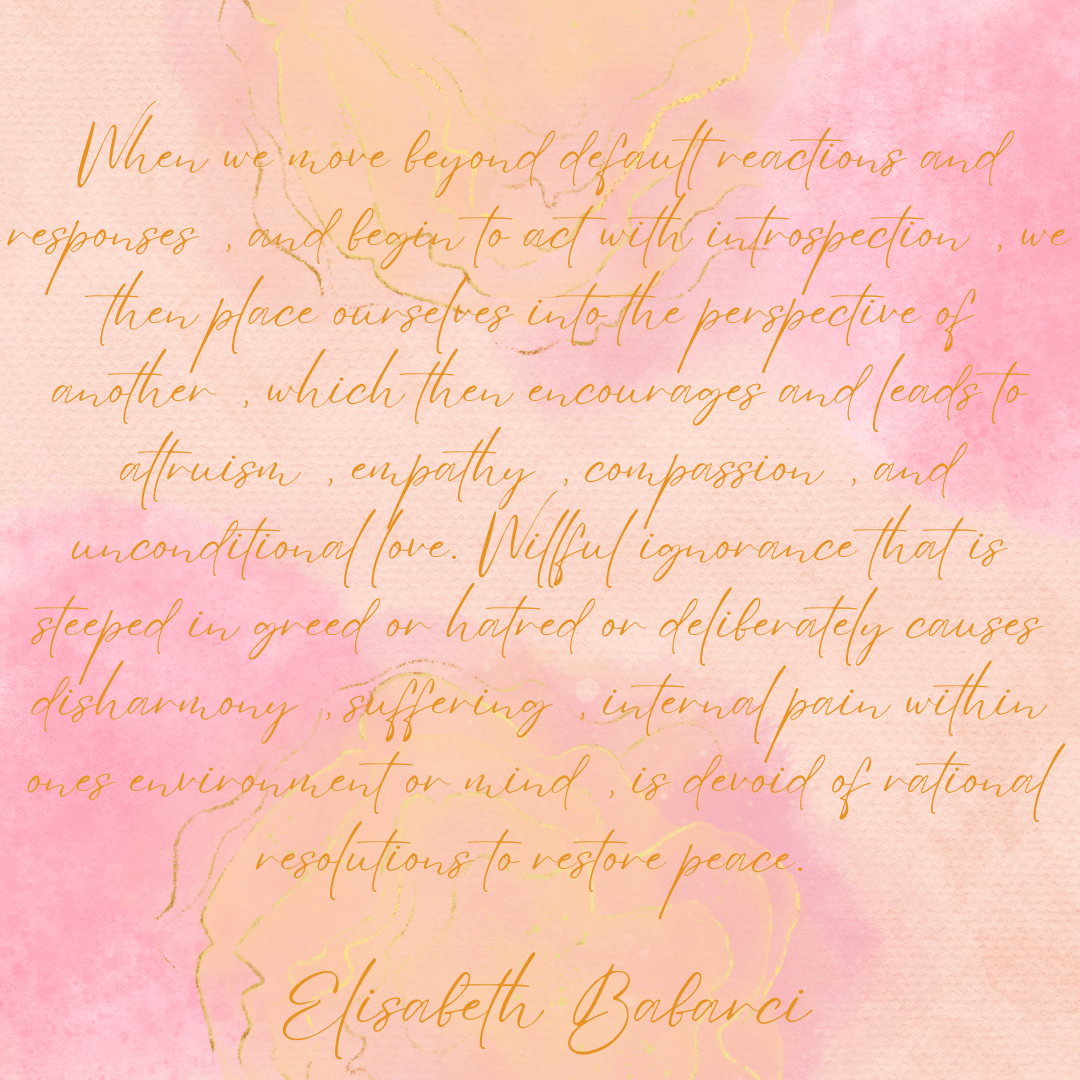 When we move beyond default reactions and
responses , and begin to act with introspection , we
then place ourselves into the perspective of
another , which then encourages and leads to
altruism , empathy , compassion , and
unconditional love. Willful ignorance that is
steeped in greed or hatred or deliberately causes
disharmony , suffering , internal pain within
ones environment or mind , is devoid of rational
resolutions to restore peace.
Elisabeth Babarci